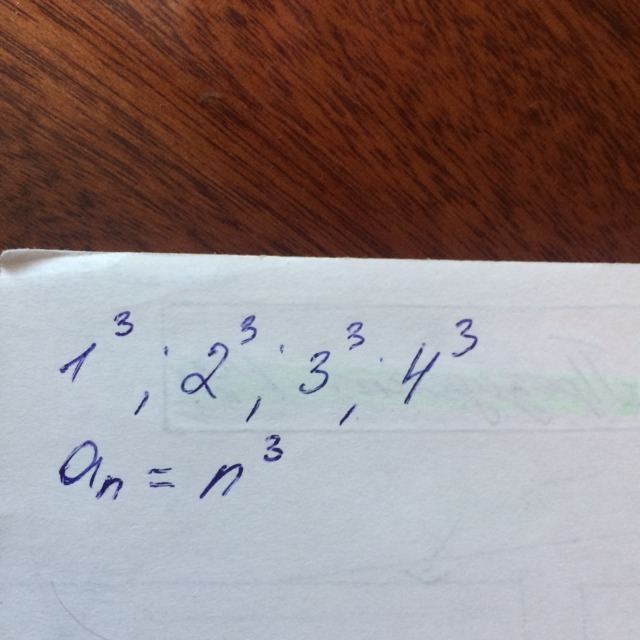 1³, 2³, 3³, 4³
aₙ = n³